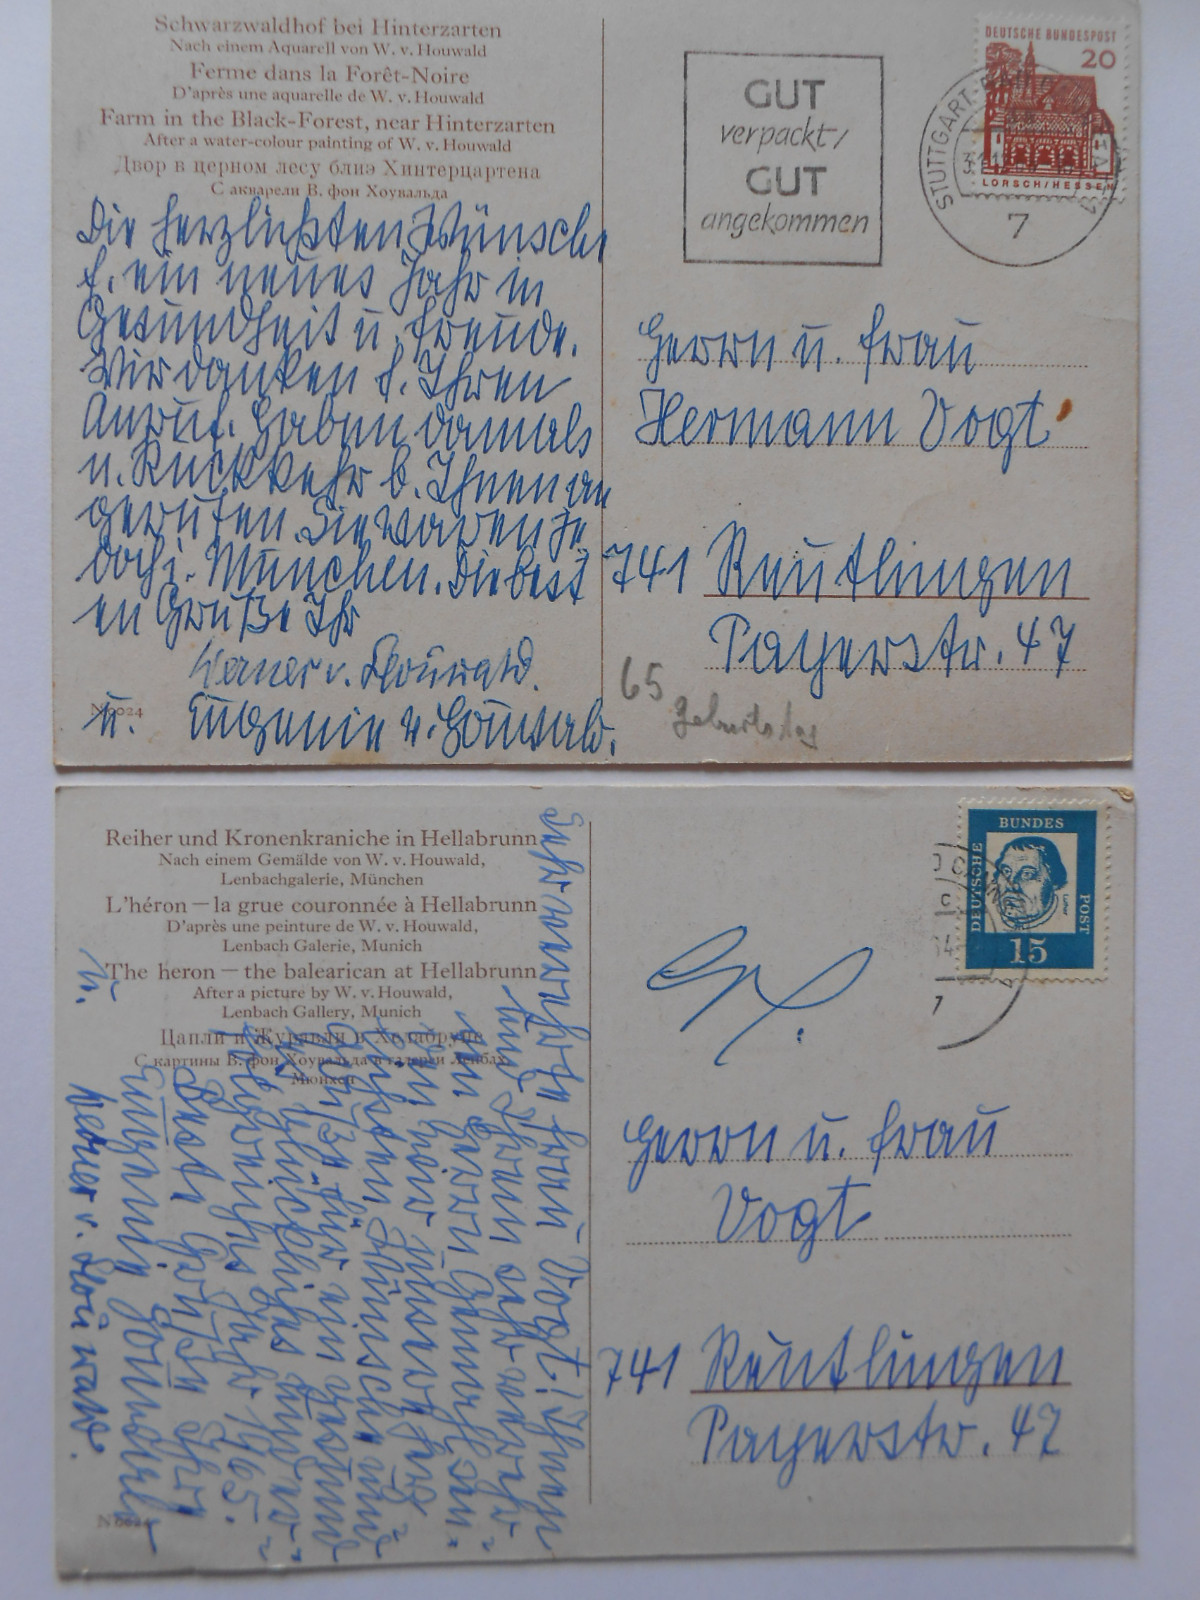 Schwarzwaldhof bei Hinterzarten
Nach einem Aquarell von W. v. Houwald
Ferme dans la Forêt-Noire
D'après une aquarelle de W. v. Houwald
Farm in the Black-Forest, near Hinterzarten
After a water-colour painting of W. v. Houwald
Двор в церном лесу близ Хинтерцартена
С акварели В. фон Хоувальда
Die herzlichsten Wünsche
f. ein neues Jahr in
Gesundheit u. Freude.
Wir danken f. Ihren
Anruf. Haben damals
n. Rückkehr b. Ihnen an
gerufen. Sie waren je
doch i. München. Die best
en Grüße Ihr
Werner v. Houwald.
u. Eugenie v. Houwald.
N 0024
GUT
verpackt/
GUT
angekommen
DEUTSCHE BUNDESPOST
20
LORSCH/HESSEN
STUTTGART
7
Herrn u. Frau
Hermann Vogt
741 Reutlingen
Payerstr. 47
65
Geburtstag
Reiher und Kronenkraniche in Hellabrunn
Nach einem Gemälde von W. v. Houwald,
Lenbachgalerie, München
L'héron — la grue couronnée à Hellabrunn
D'après une peinture de W. v. Houwald,
Lenbach Galerie, Munich
The heron — the balearican at Hellabrunn
After a picture by W. v. Houwald,
Lenbach Gallery, Munich
Цапли и Журавли в Хелабруне
С картины В. фон Хоувальда в галереи Ленбах,
Мюнхен
Sehr verehrte Frau Vogt! Ihnen
und Ihrem sehr verehr-
ten Herrn Gemahl sen-
den wir unsere herz-
lichsten Wünsche und
Grüße für ein gesund-
es glückliches und er-
folgreiches Jahr 1965.
Beste Grüße Ihre
Eugenie Houwald
u. Werner v. Houwald.
N 0024
DEUTSCHE
BUNDES
POST
15
Herrn u. Frau
Vogt
741 Reutlingen
Payerstr. 47